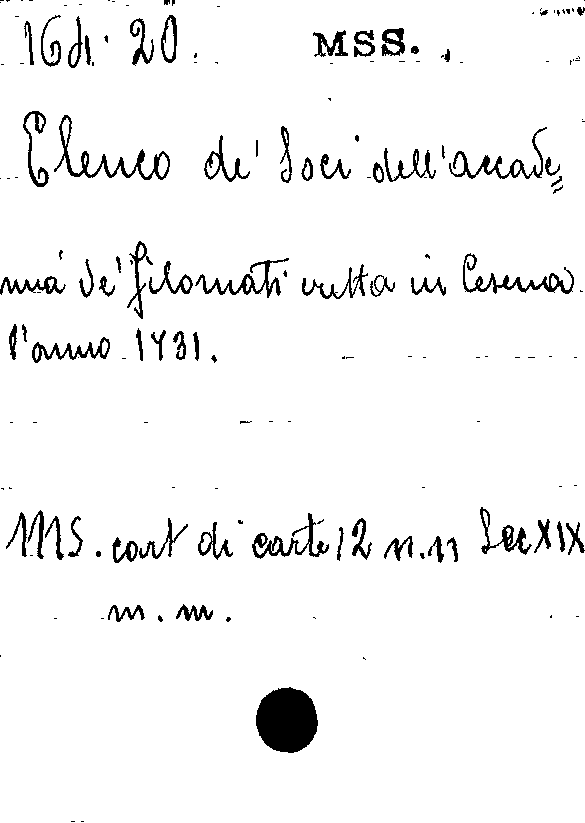 164. 20. MSS.
Elenco de' Soci dell'accade=
mia de' Filomati eretta in Cesena
l'anno 1731.
MS. cart di carte 12 n. n Sec XIX
m. m.